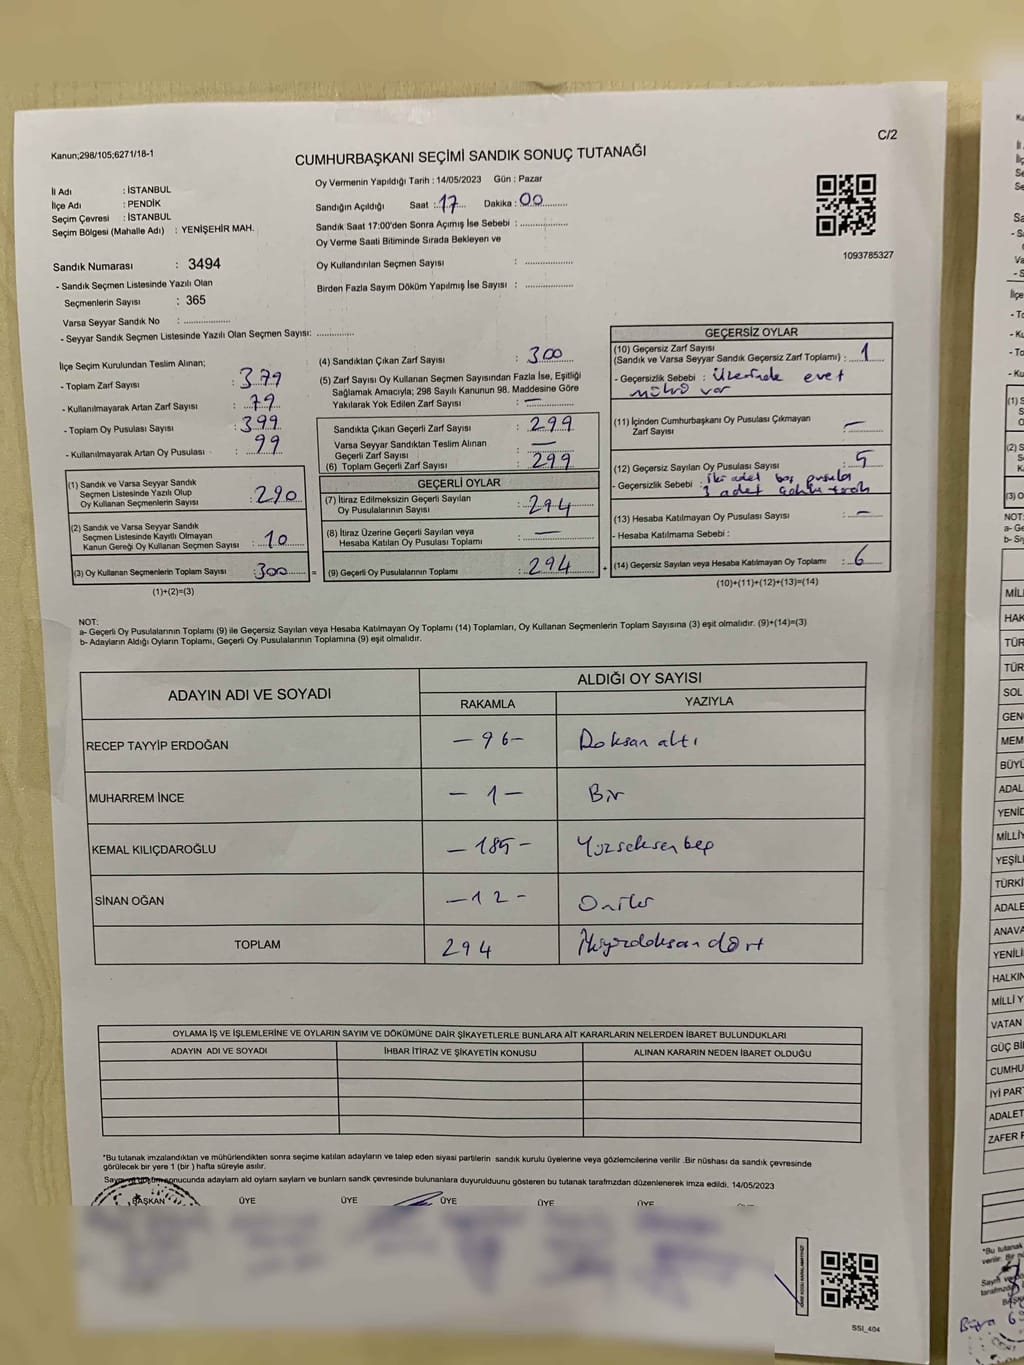 C/2
Kanun;298/105;6271/18-1
CUMHURBAŞKANI SEÇİMİ SANDIK SONUÇ TUTANAĞI
İl Adı : İSTANBUL
İlçe Adı : PENDİK
Seçim Çevresi : İSTANBUL
Seçim Bölgesi (Mahalle Adı) : YENİŞEHİR MAH.
Sandık Numarası : 3494
- Sandık Seçmen Listesinde Yazılı Olan
Seçmenlerin Sayısı : 365
Varsa Seyyar Sandık No :
- Seyyar Sandık Seçmen Listesinde Yazılı Olan Seçmen Sayısı:
Oy Vermenin Yapıldığı Tarih : 14/05/2023 Gün : Pazar
Sandığın Açıldığı Saat : 17 Dakika : 00
Sandık Saat 17:00'den Sonra Açımış İse Sebebi :
Oy Verme Saati Bitiminde Sırada Bekleyen ve
Oy Kullandırılan Seçmen Sayısı :
Birden Fazla Sayım Döküm Yapılmış İse Sayısı :
1093785327
İlçe Seçim Kurulundan Teslim Alınan;
- Toplam Zarf Sayısı : 379
- Kullanılmayarak Artan Zarf Sayısı : 79
- Toplam Oy Pusulası Sayısı : 399
- Kullanılmayarak Artan Oy Pusulası : 99
(1) Sandık ve Varsa Seyyar Sandık
Seçmen Listesinde Yazılı Olup
Oy Kullanan Seçmenlerin Sayısı : 290
(2) Sandık ve Varsa Seyyar Sandık
Seçmen Listesinde Kayıtlı Olmayan
Kanun Gereği Oy Kullanan Seçmen Sayısı : 10
(3) Oy Kullanan Seçmenlerin Toplam Sayısı : 300
(1)+(2)=(3)
(4) Sandıktan Çıkan Zarf Sayısı : 300
(5) Zarf Sayısı Oy Kullanan Seçmen Sayısından Fazla İse, Eşitliği
Sağlamak Amacıyla; 298 Sayılı Kanunun 98. Maddesine Göre
Yakılarak Yok Edilen Zarf Sayısı : —
Sandıkta Çıkan Geçerli Zarf Sayısı : 299
Varsa Seyyar Sandıktan Teslim Alınan
Geçerli Zarf Sayısı : —
(6) Toplam Geçerli Zarf Sayısı : 299
GEÇERLİ OYLAR
(7) İtiraz Edilmeksizin Geçerli Sayılan
Oy Pusulalarının Sayısı : 294
(8) İtiraz Üzerine Geçerli Sayılan veya
Hesaba Katılan Oy Pusulası Toplamı : —
= (9) Geçerli Oy Pusulalarının Toplamı : 294
GEÇERSİZ OYLAR
(10) Geçersiz Zarf Sayısı
(Sandık ve Varsa Seyyar Sandık Geçersiz Zarf Toplamı) : 1
- Geçersizlik Sebebi : Üzerinde evet
mührü var
(11) İçinden Cumhurbaşkanı Oy Pusulası Çıkmayan
Zarf Sayısı —
(12) Geçersiz Sayılan Oy Pusulası Sayısı : 5
- Geçersizlik Sebebi : iki adet boş pusula
3 adet
(13) Hesaba Katılmayan Oy Pusulası Sayısı : —
- Hesaba Katılmama Sebebi :
+ (14) Geçersiz Sayılan veya Hesaba Katılmayan Oy Toplamı : 6
(10)+(11)+(12)+(13)=(14)
NOT:
a- Geçerli Oy Pusulalarının Toplamı (9) ile Geçersiz Sayılan veya Hesaba Katılmayan Oy Toplamı (14) Toplamları, Oy Kullanan Seçmenlerin Toplam Sayısına (3) eşit olmalıdır. (9)+(14)=(3)
b- Adayların Aldığı Oyların Toplamı, Geçerli Oy Pusulalarının Toplamına (9) eşit olmalıdır.
ADAYIN ADI VE SOYADI
ALDIĞI OY SAYISI
RAKAMLA YAZIYLA
RECEP TAYYİP ERDOĞAN – 96 – Doksan altı
MUHARREM İNCE – 1 – Bir
KEMAL KILIÇDAROĞLU – 185 – Yüzseksenbeş
SİNAN OĞAN – 12 – Oniki
TOPLAM 294 İkiyüzdoksan dört
OYLAMA İŞ VE İŞLEMLERİNE VE OYLARIN SAYIM VE DÖKÜMÜNE DAİR ŞİKAYETLERLE BUNLARA AİT KARARLARIN NELERDEN İBARET BULUNDUKLARI
ADAYIN ADI VE SOYADI İHBAR İTİRAZ VE ŞİKAYETİN KONUSU ALINAN KARARIN NEDEN İBARET OLDUĞU
*Bu tutanak imzalandıktan ve mühürlendikten sonra seçime katılan adayların ve talep eden siyasi partilerin sandık kurulu üyelerine veya gözlemcilerine verilir .Bir nüshası da sandık çevresinde
görülecek bir yere 1 (bir ) hafta süreyle asılır.
sonucunda adayların aldığı oyların sayılarını ve bunların sandık çevresinde bulunanlara duyurulduunu gösteren bu tutanak tarafımzdan düzenlenerek imza edildi. 14/05/2023
BAŞKAN ÜYE ÜYE ÜYE ÜYE ÜYE
SSI_404
MİLLİ Y
VATAN
GÜÇ Bİ
CUMHU
İYİ PAR
ADALET
ZAFER P